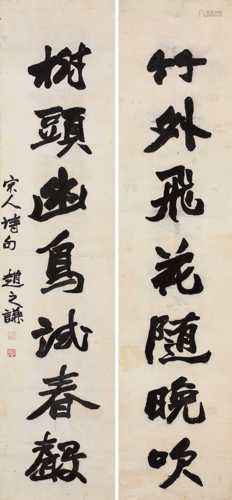 竹外飛花随晚吹
樹頭幽鳥試春聲
宋人詩句 趙之謙